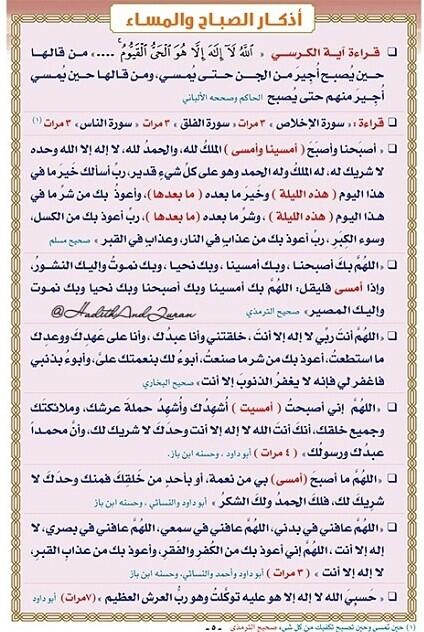 أذكار الصباح والمساء
❑ قراءة آية الكرسي « اللَّهُ لَا إِلَهَ إِلَّا هُوَ الْحَيُّ الْقَيُّومُ ۚ .... » من قالها
حين يُصبح أُجيرَ من الجن حتى يُمسي، ومن قالها حين يُمسي
أُجيرَ منهم حتى يُصبح الحاكم وصححه الألباني
❑ قراءة : « سورة الإخلاص » ٣ مرات « سورة الفلق » ٣ مرات « سورة الناس » ٣ مرات (١)
❑ « أصبحنا وأصبحَ ( أمسينا وأمسى ) الملكُ لله، والحمدُ لله، لا إله إلا الله وحده
لا شريكَ له، له الملكُ وله الحمد وهو على كلّ شيءٍ قدير، ربِّ أسألك خيرَ ما في
هذا اليوم ( هذه الليلة ) وخيرَ ما بعده ( ما بعدها )، وأعوذُ بك من شرّ ما في
هذا اليوم ( هذه الليلة ) ، وشرّ ما بعده (ما بعدها)، ربِّ أعوذ بك من الكسل،
وسوء الكِبَرِ، ربِّ أعوذ بك من عذابٍ في النار، وعذابٍ في القبر » صحيح مسلم
❑ « اللهُمَّ بكَ أصبحنا ، وبك أمسينا ، وبك نحيا ، وبك نموتُ وإليك النشورُ،
وإذا أمسى فليقل: اللهُمَّ بك أمسينا وبك أصبحنا وبك نحيا وبك نموت
وإليك المصير » صحيح الترمذي
@HadithAndQuran
❑ « اللهُمَّ أنتَ ربّي لا إله إلا أنتَ ، خلقتني وأنا عبدُك ، وأنا على عهدِك ووعدِك
ما استطعتُ، أعوذ بك من شر ما صنعتُ، أبوءُ لك بنعمتك عليَّ، وأبوءُ بذنبي
فاغفر لي فإنه لا يغفرُ الذنوبَ إلا أنت » صحيح البخاري
❑ « اللهُمَّ إني أصبحتُ ( أمسيت ) أُشهدُك وأُشهدُ حملةَ عرشك، وملائكتَك
وجميع خلقك، أنكَ أنتَ الله لا إله إلا أنت وحدَكَ لا شريكَ لك، وأنَّ محمداً
عبدُك ورسولُك » ( ٤ مرات ) أبو داود ، وحسنه ابن باز.
❑ « اللهُمَّ ما أصبحَ (أمسى) بي من نعمة، أو بأحدٍ من خَلقِكَ فمنك وحدَكَ لا
شريكَ لك، فلكَ الحمدُ ولكَ الشكرُ » أبو داود والنسائي ، وحسنه ابن باز
❑ « اللهُمَّ عافني في بدني، اللهُمَّ عافني في سمعي، اللهُمَّ عافني في بصري، لا
إله إلا أنت ، اللهُمَّ إني أعوذُ بك من الكُفرِ والفَقرِ، وأعوذُ بك من عذابِ القبرِ،
لا إله إلا أنت » ( ٣ مرات ) أبو داود وأحمد والنسائي، وحسنه ابن باز
❑ « حَسبيَ الله لا إله إلا هو عليه توكّلتُ وهو ربُّ العرش العظيم » (٧مرات) أبو داود
(١) حين تمسي وحين تصبح تكفيك من كل شيء، صحيح الترمذي
-٥-